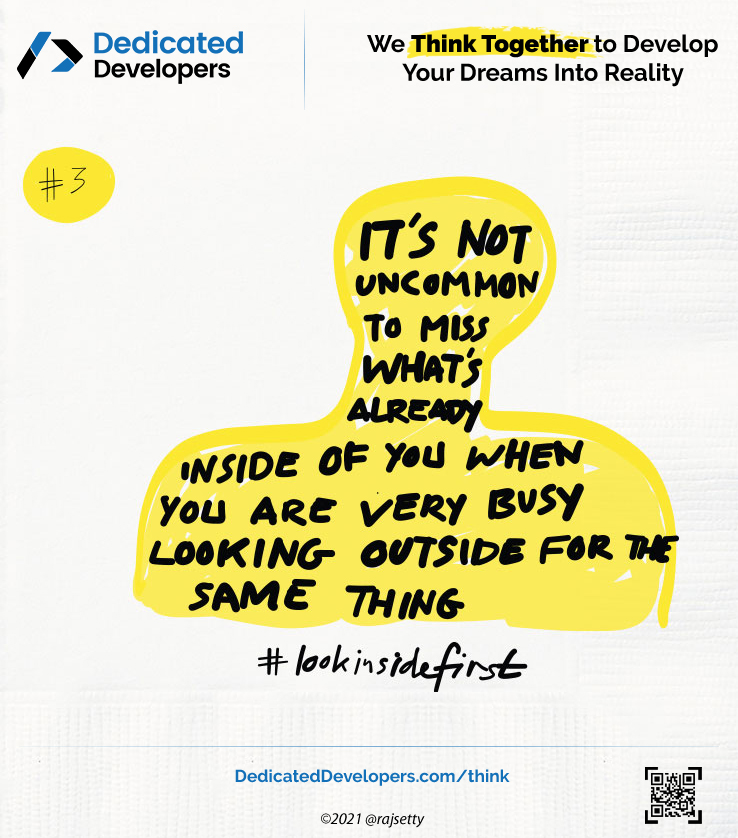 Dedicated
Developers
We Think Together to Develop
Your Dreams Into Reality
#3
IT'S NOT
UNCOMMON
TO MISS
WHAT'S
ALREADY
INSIDE OF YOU WHEN
YOU ARE VERY BUSY
LOOKING OUTSIDE FOR THE
SAME THING
#lookinsidefirst
DedicatedDevelopers.com/think
©2021 @rajsetty